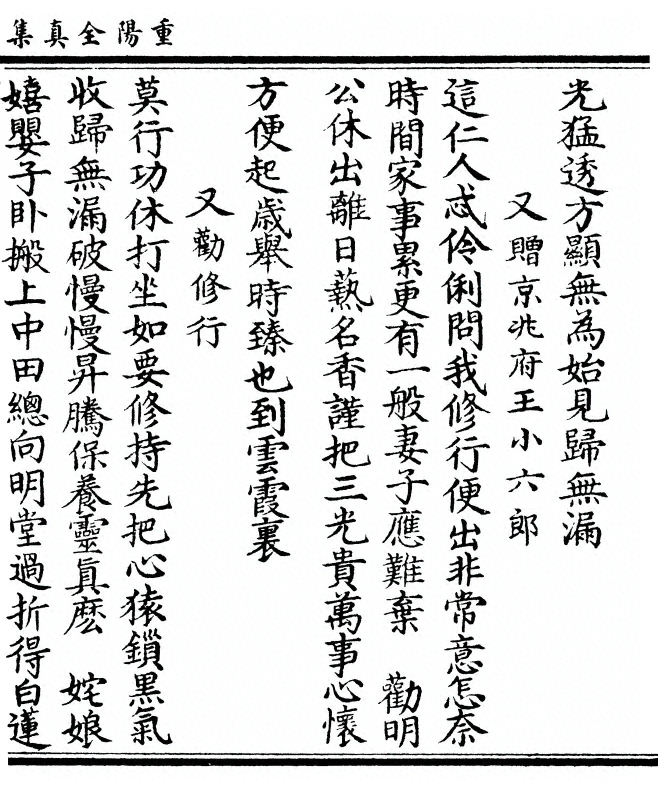 重陽全真集
光猛透方顯無為始見歸無漏
又贈京兆府王小六郎
這仁人忒伶俐問我修行便出非常意怎奈
時間家事累更有一般妻子應難棄　勸明
公休出離日爇名香謹把三光貴萬事心懷
方便起歲舉時臻也到雲霞裏
又勸修行
莫行功休打坐如要修持先把心猿鎖黑氣
收歸無漏破慢慢昇騰保養靈真麽　姹娘
嬉嬰子臥搬上中田總向明堂過折得白蓮